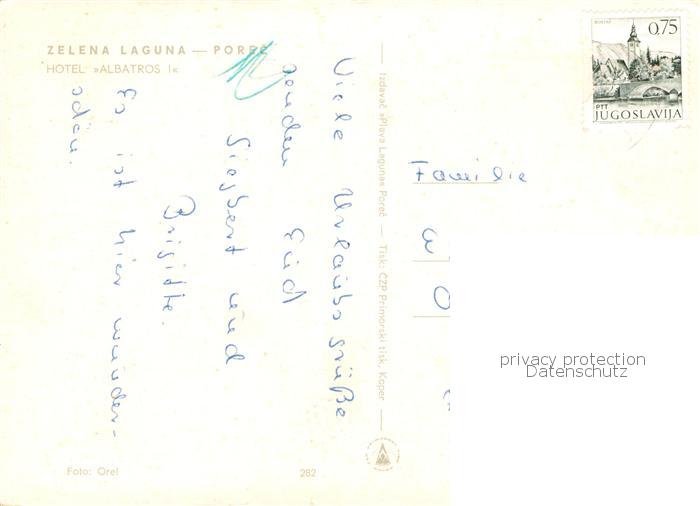 ZELENA LAGUNA — POREČ
HOTEL »ALBATROS I«
Viele Urlaubsgrüße
senden Euch
Siegbert und
Brigitte.
Es ist hier wunder-
schön.
Izdavač »Plava Laguna« Poreč — Tisk: ČZP Primorski tisk, Koper
0,75
PTT
JUGOSLAVIJA
Familie
W
O
privacy protection
Datenschutz
Foto: Orel
282